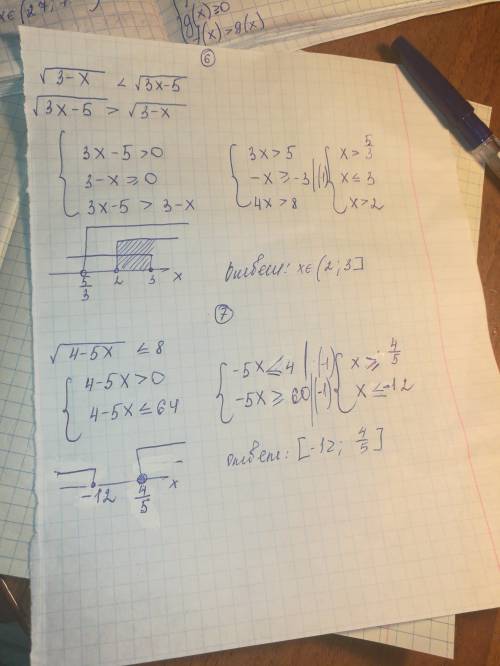 x∈(27; +
g(x)≥0
f(x)>g(x)
6
√3-x < √3x-5
√3x-5 > √3-x
3x-5>0
3-x≥0
3x-5 > 3-x
3x>5
-x≥-3 |(-1)
4x>8
x>5/3
x≤3
x>2
5/3 2 3 x
Ответ: x∈(2; 3]
7
√4-5x ≤8
4-5x>0
4-5x≤64
-5x≤4 | (-1)
-5x≥60 |(-1)
x≥4/5
x≤-12
-12 4/5 x
Ответ: [-12; 4/5]